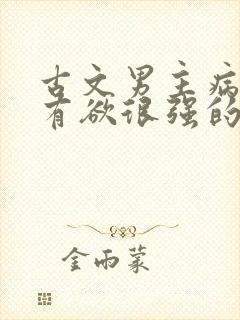 古文男主病
有欲很强的
金雨蒙